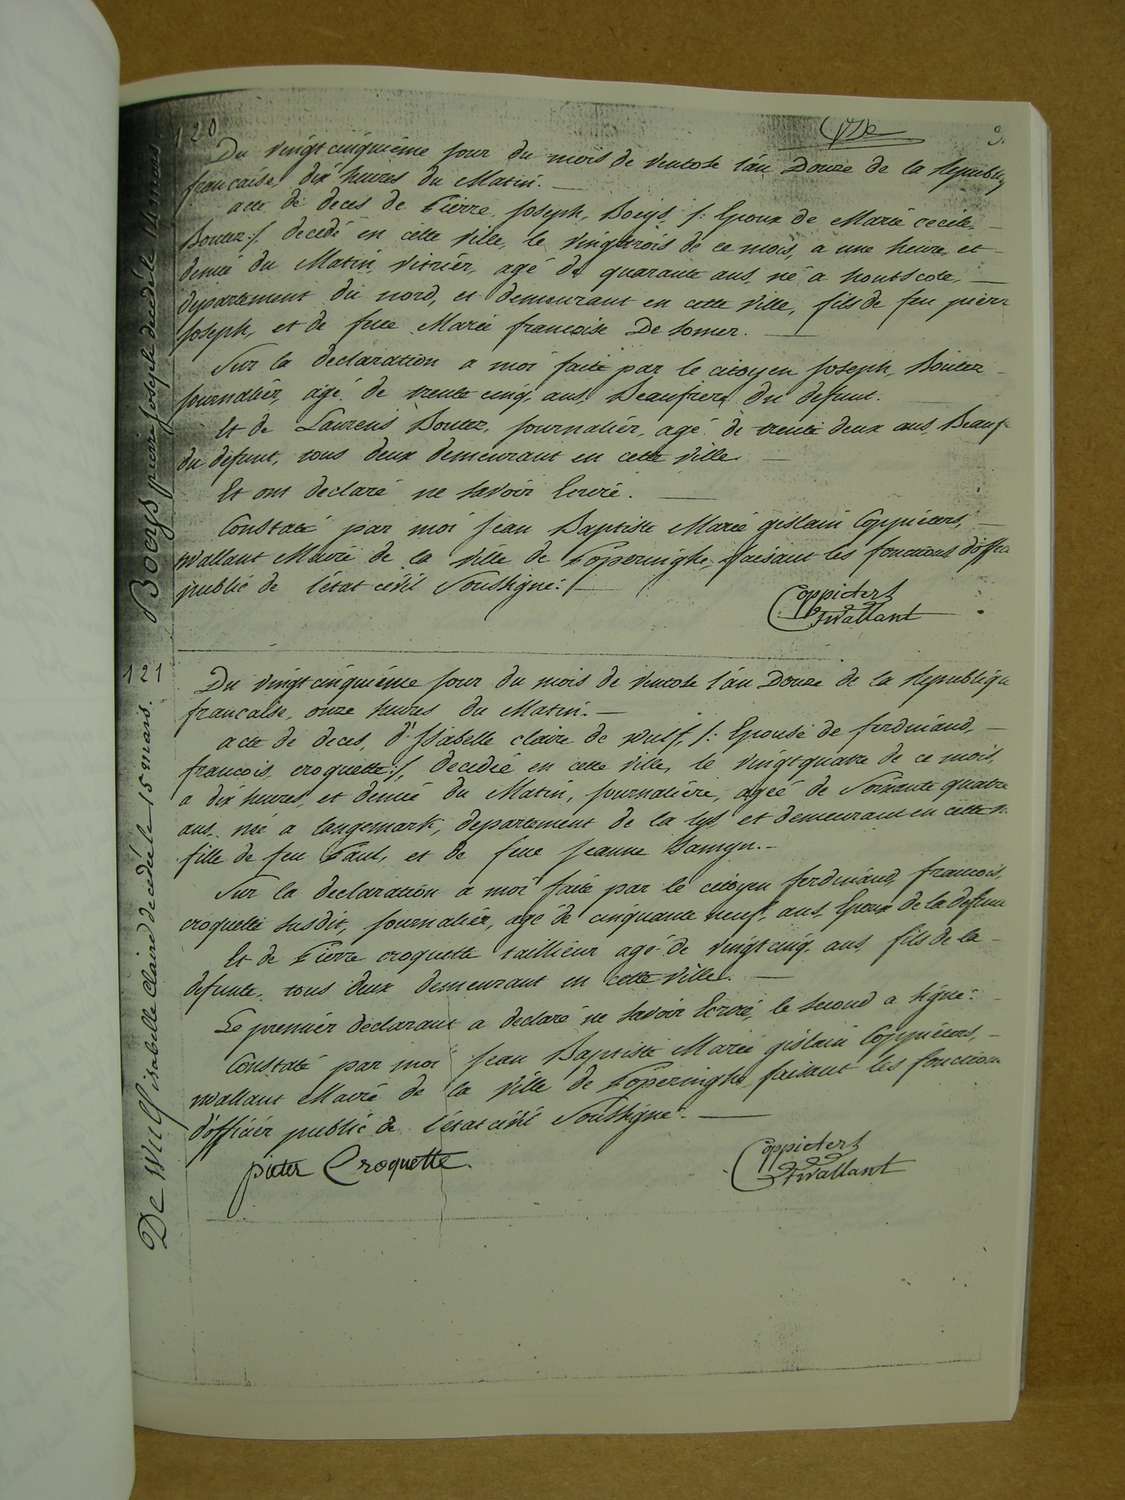 120
Du vingtcinquième jour du mois de ventose l'an Douze de la Republiq
française, dix heures du Matin. —
acte de deces de Pierre Joseph Boeys /: Epoux de Marie cecile
Boutez :/ decedé en cette ville, le vingtrois de ce mois, a une heure et
demie du Matin, vitrier, agé de quarante ans, né a hontscote,
département du nord, et demeurant en cette ville, fils de feu pierre
joseph, et de feue Marie françoise De Somer. —
Sur la declaration a moi faite par le citoyen Joseph Boutez
journalier, agé de trente cinq ans, Beaufrere du defunt.
Et de Laurens Boutez, journalier, agé de trente deux ans, Beauf
du defunt, tous deux demeurant en cette ville —
Et ont declaré ne savoir Ecrire. —
Constaté par moi Jean Baptiste Marie gislain Coppieters,
wallant Maire de la ville de Poperinghe, faisant les fonctions d'offic
public de l'état civil Soussigné: /
Coppieters
twallant
Boeys pierre joseph decédé le 14 mars
121
Du vingtcinquième jour du mois de ventose l'an Douze de la Republiqu
francaise, onze heures du Matin. —
acte de deces, d'Isabelle claire de wulf, /: Epouse de ferdinand,
francois croquette :/, decedée en cette ville, le vingtquatre de ce mois,
a dix heures et demie du Matin, journalière, agée de Soixante quatre
ans, née a langemark, departement de la lys, et demeurant en cette v.
fille de feu Paul, et de feue Jeanne Samyn. —
Sur la declaration a moi faite par le citoyen ferdinand, francois,
croquette susdit, journalier, agé de cinquante neuf ans, Epoux de la defunte
Et de Pierre croquette tailleur agé de vingtcinq ans fils de la
defunte, tous deux demeurant en cette ville. —
Le premier declarant a declaré ne savoir Ecrire, le second a signé:
Constaté par moi Jean Baptiste Marie gislain Coppieters,
wallant Maire de la ville de Poperinghe faisant les fonction
d'officier public de l'état civil Soussigné. —
pieter Croquette.
Coppieters
twallant
De Wulf isabelle Claire decedée le 15 mars.